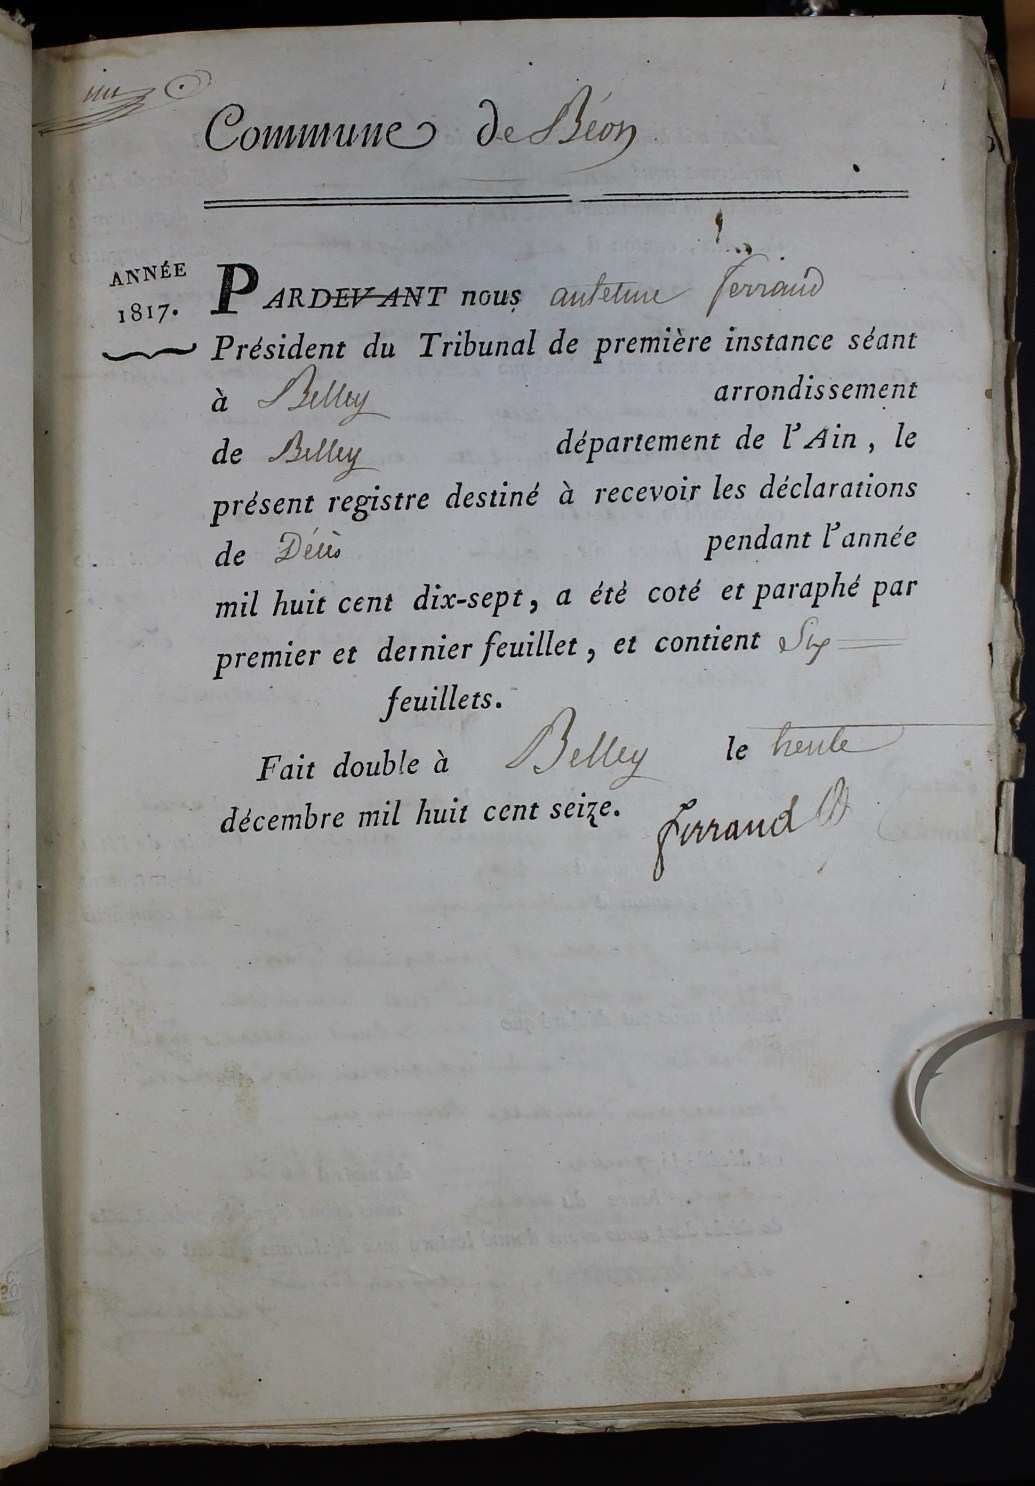 Commune de Béon
ANNÉE
1817.
PARDEVANT nous antelme ferrand
Président du Tribunal de première instance séant
à Belley arrondissement
de Belley département de l'Ain, le
présent registre destiné à recevoir les déclarations
de Décès pendant l'année
mil huit cent dix-sept, a été coté et paraphé par
premier et dernier feuillet, et contient Six
feuillets.
Fait double à Belley le trente
décembre mil huit cent seize.
ferrand